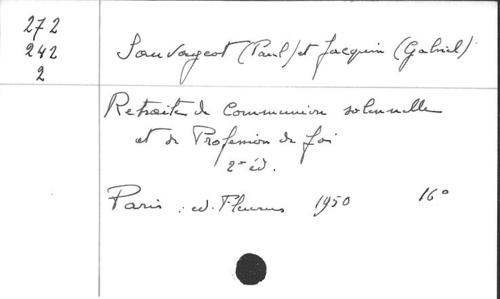 272
242
2
Sauvageot (Paul) et Jacquin (Gabriel)
Retraites de Communion solennelle
et de Profession de foi
2e éd.
Paris : ed. Fleurus 1950 16°